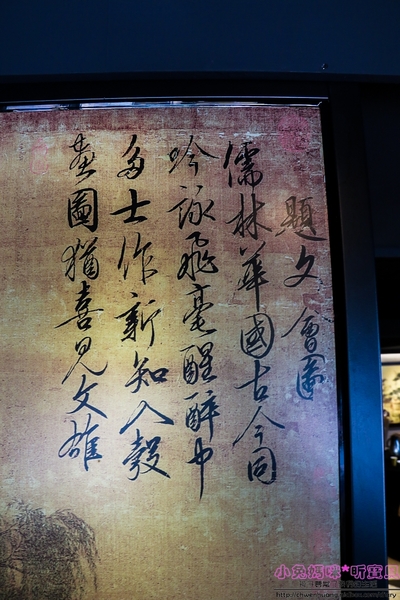 題文會圖
儒林華國古今同
吟詠飛毫醒醉中
多士作新知入彀
畫圖猶喜見文雄
小兔媽咪*昕寶貝